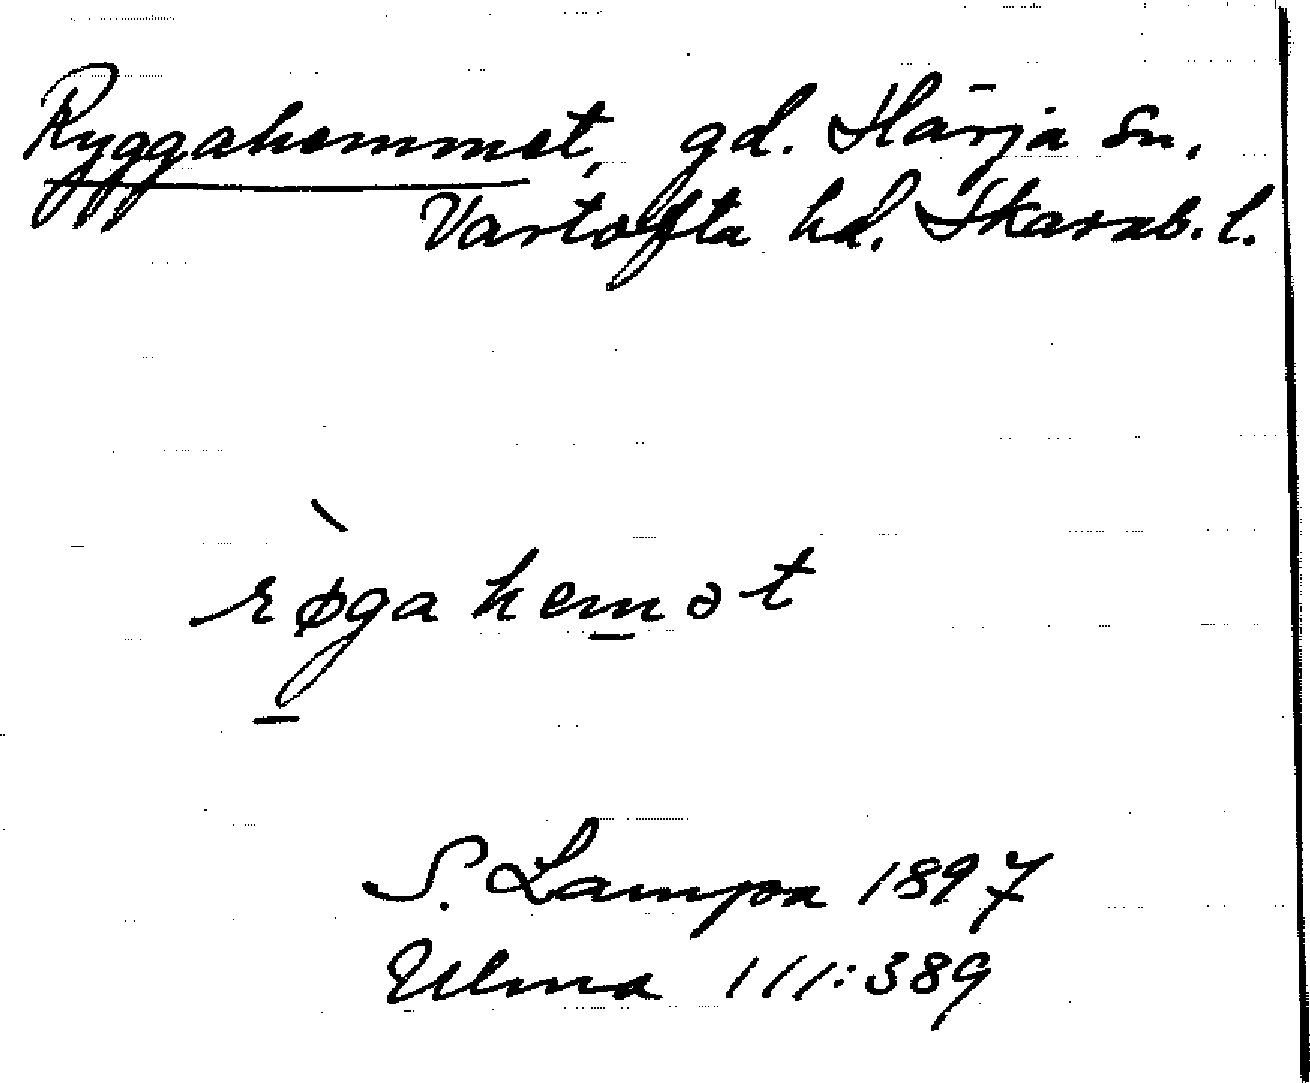 Ryggahemmet, gd. Härja sn.
Vartofta hd. Skarab. l.
rø̀g̲ahem̲ət
S. Lampa 1897
Ulma 111:389